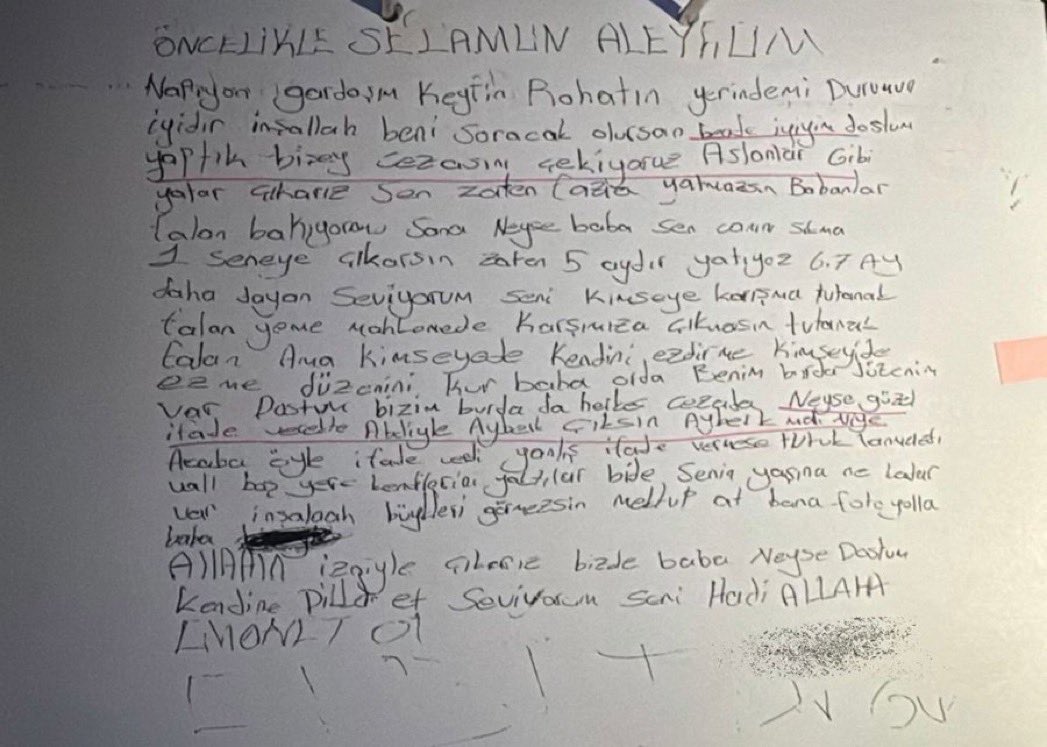 ÖNCELİKLE SELAMUN ALEYKÜM
Napıyon gardaşım Keyfin Rohatın yerindemi Durumun
iyidir inşallah beni soracak olursan bende iyiyim dostum
yaptık bizey cezasını çekiyoruz Aslanlar Gibi
yatar çıkarız Sen zaten fazla yatmazsın Babanlar
falan bakıyorm Sana Neyse baba sen canın sıkma
1 Seneye çıkarsın zaten 5 aydır yatıyoz 6.7 AY
daha dayan Seviyorum seni Kimseye karışma tutanak
falan yeme mahkemede Karşımıza Çıkmasın tutanak
falan Ama kimseyede Kendini ezdirme Kimseyide
ezme düzenini Kur baba orda Benim burda düzenim
var Dostum bizim burda da herkes cezada Neyse güzel
ifade Abeliyle Ayberk Çıksın Ayberk niye
Acaba öyle ifade verdi yanlış ifade vermese tutuklanmazdı
vall boş yere yaktılar bide Senin yaşına ne kadar
var inşalaah büyükleri görmezsin mektup at bana foto yolla
baba
Allahın izniyle çıkarız bizde baba Neyse Dostum
Kendine Dikkat et Seviyorum seni Hadi ALLAHA
EMANET Ol